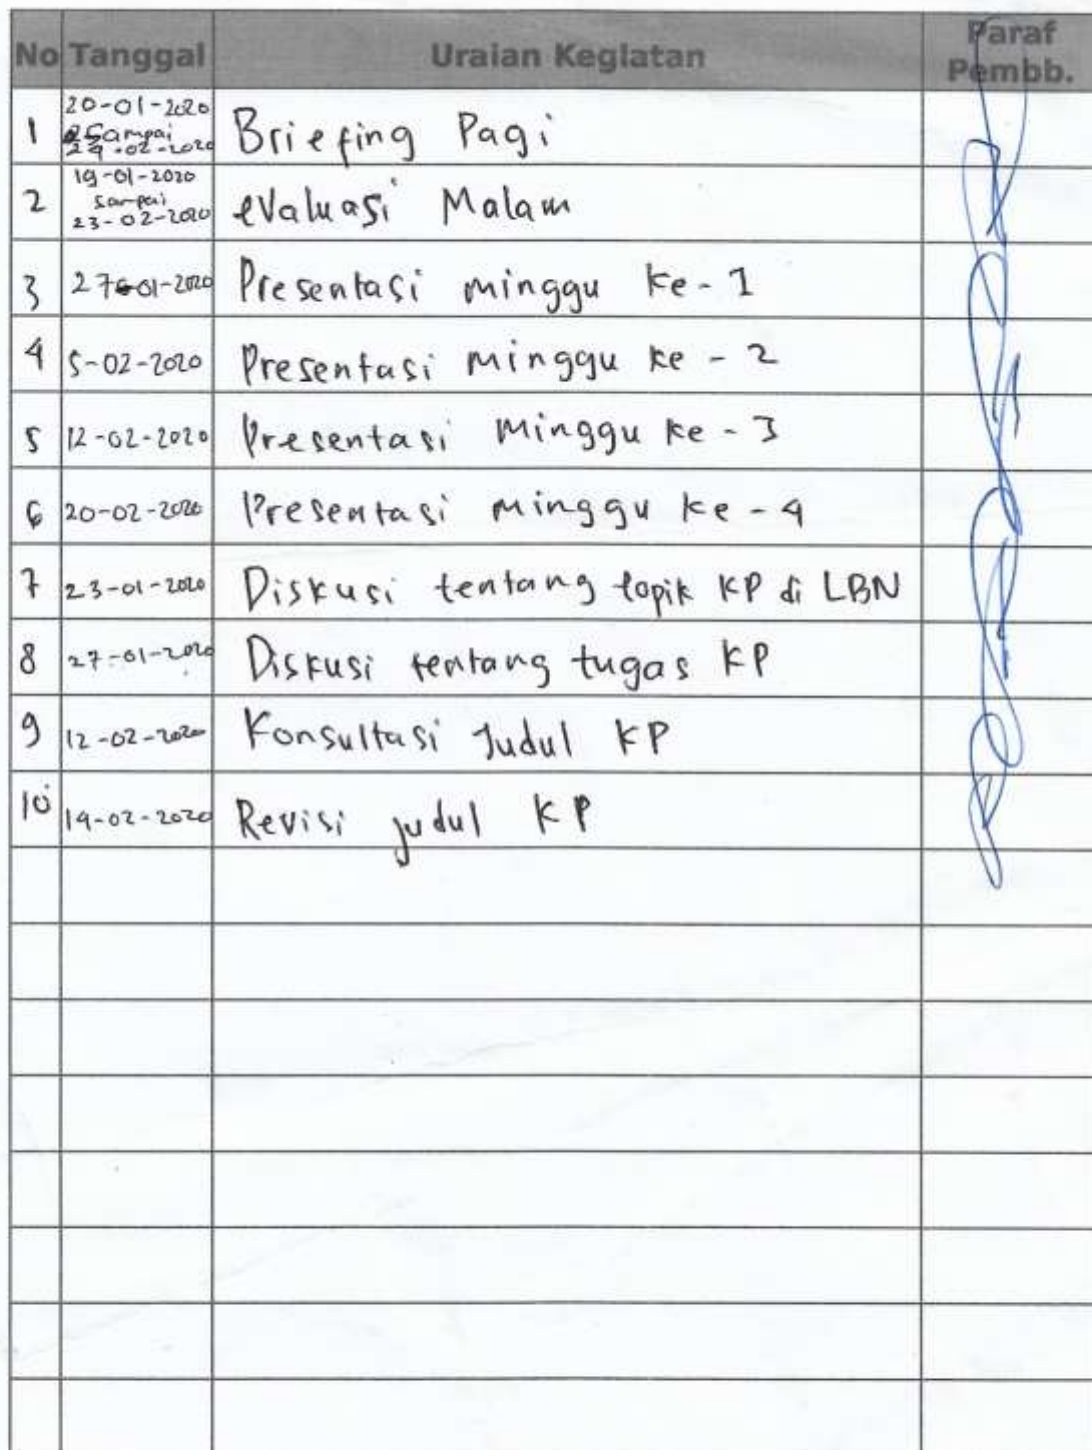 No Tanggal Uraian Kegiatan Paraf Pembb.
1 20-01-2020 Sampai 24-02-2020 Briefing Pagi
2 19-01-2020 Sampai 23-02-2020 eValuasi Malam
3 27-01-2020 Presentasi minggu ke-1
4 5-02-2020 Presentasi minggu ke-2
5 12-02-2020 Presentasi Minggu ke-3
6 20-02-2020 Presentasi minggu ke-4
7 23-01-2020 Diskusi tentang topik KP di LBN
8 27-01-2020 Diskusi tentang tugas KP
9 12-02-2020 Konsultasi Judul KP
10 19-02-2020 Revisi judul KP